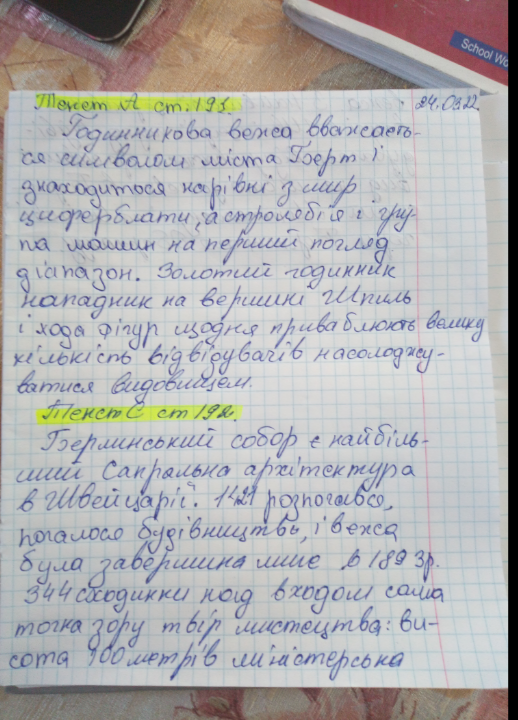 School Wo
Текст А ст. 191.
24.03.22.
Годинникова вежа вважаєть-
ся символом міста Берт і
знаходиться нарівні з мир
циферблати, астролебія і гру-
па машин на перший погляд
діапазон. Золотий годинник
нападник на вершині Шпиль
і хода фігур щодня приваблюють велику
кількість відвідувачів насолоджу-
ватися видовищем.
Текст С ст 192.
Бернинський собор є найбіль-
ший Сапральна архітектура
в Швейцарії. 1421 розпочався,
почалося будівництво, і вежа
була завершина лише в 1893р.
344 сходинки над входом сама
точка зору твір мистецтва: ви-
сота 100 метрів міністерська